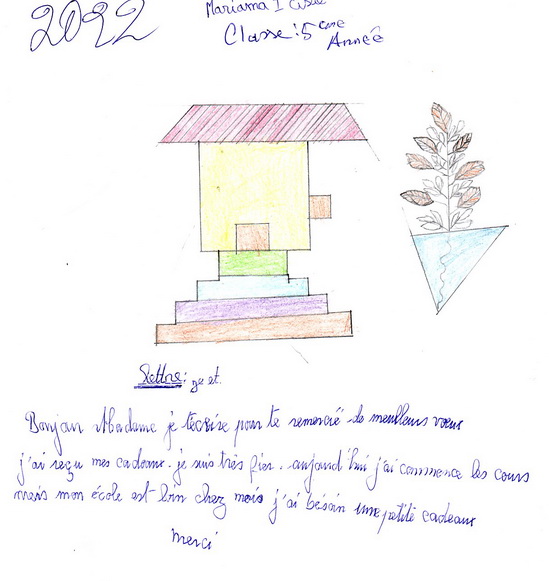 2022
Mariama I
Classe: 5ème
Année
Lettre: ze et.
Bonjan Madame je técrise pour te remercié de meulleurs vœux
j'ai reçu mes cadeaux. je suis très fier. aujourd'hui j'ai commence les cours
mais mon école est-bin chez mois j'ai besoin une petité cadeaux
Merci